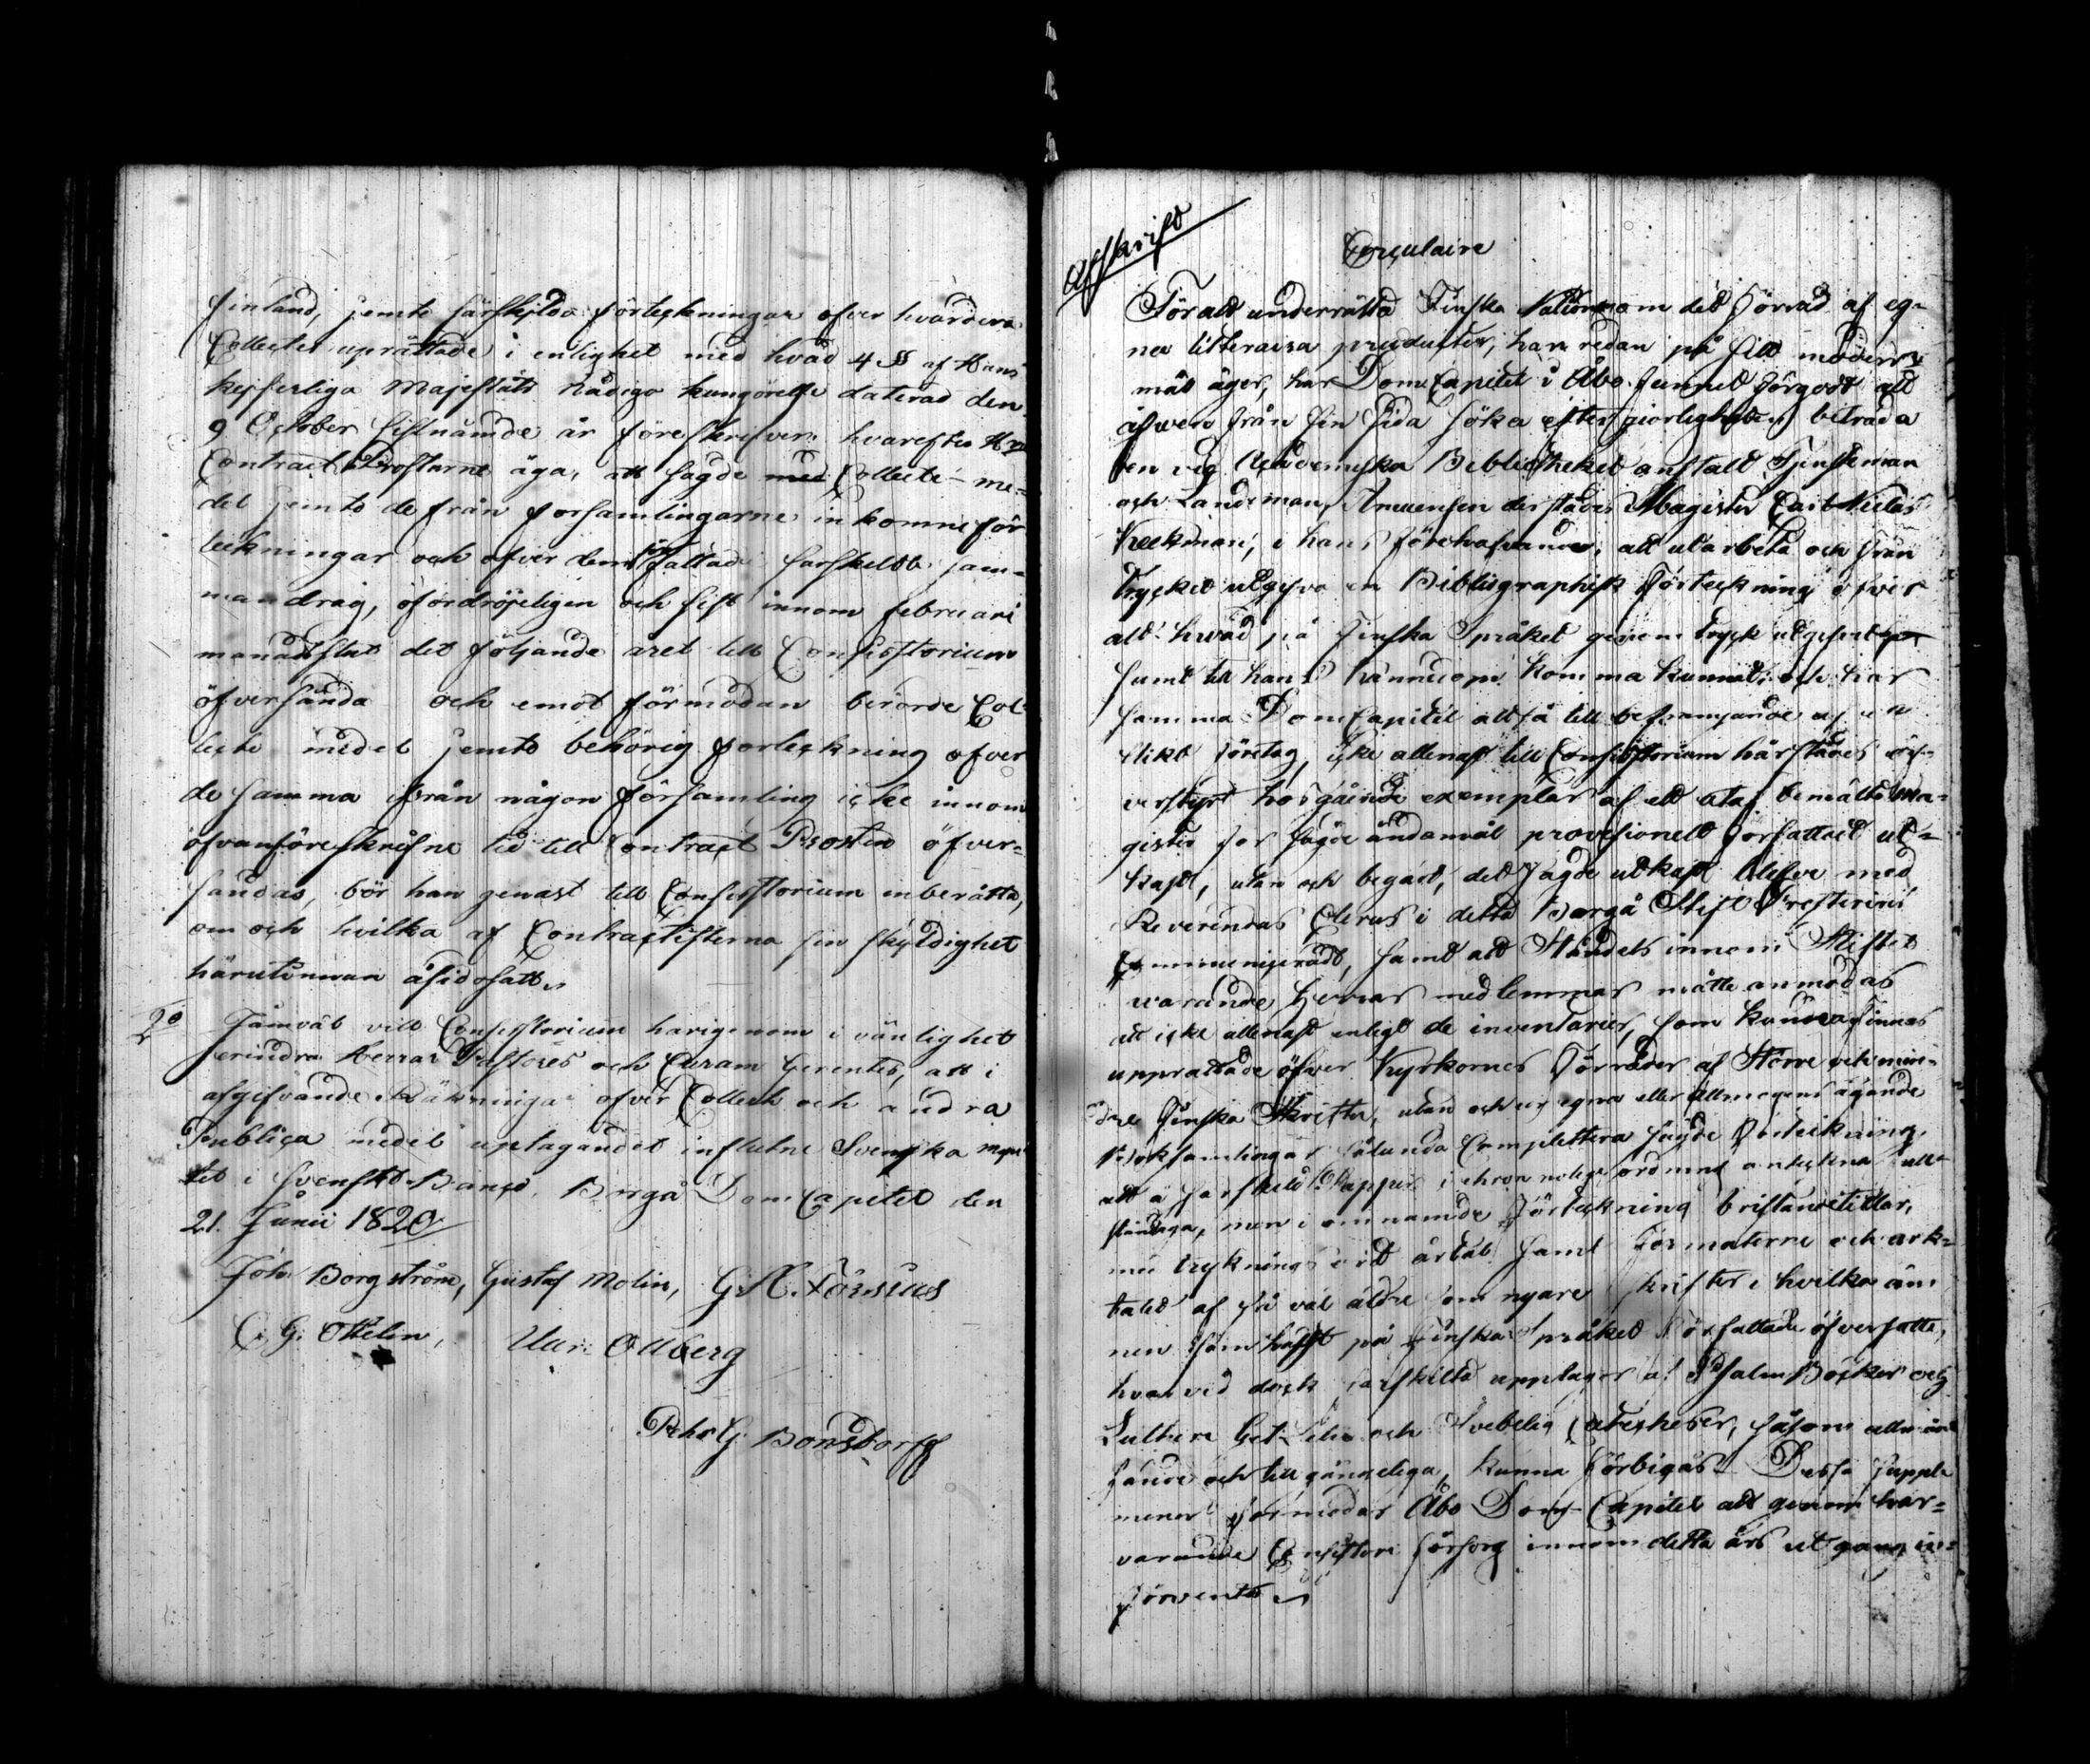 Finland, jemte särskilda förteckningar öfver hvardera
Collecter uprättade i enlighet med hvad 4 § af Hans
kejserliga Majestäts Nådiga kungörelse daterad den
9 October sistnämde år föreskrifver, hvarefter Hrr
Contract Prostarne äga, att sagde med Collecte-me-
del jemte de från församlingarne inkomne för
teckningar och öfver dem författade särskilte sam-
mandrag, ofördröjeligen och sist innom februari
månads slut det följande året till Consistorium
öfversända och emot förmodan berörde Col-
lecte medel jemte behörig förteckning öfver
de samma ifrån någon församling icke innom
ofvanföreskrifne tid till Contract Prosten öfver-
sändas, bör han genast till Consistorium inberätta,
om och hvilka af Contractisterna sin skyldighet
härutinnan åsidosatt.
2o Jämväl vill Consistorium härigenom i vänlighet
erindra Herrar Pastores och Curam Gerentes, att i
afgifvande Räkningar öfver Collect och andra
Publiqa medel uptaga det influtne Svenska myn
tet i Svenskt Banco. Borgå Dom Capitel den
21. Junii 1820
Joh. Borgström, Gustaf Molin, G. A. Forssius
C. G. Ottelin, Ollberg
Pehr G. Bonsdorff
Afskrift
Circulaire
För att underrätta Finska Nationen om det förråd af eg-
na litteraira producter, han redan på sitt moders-
mål äger, har Dom Capitlet i Åbo funnit förgodt att
äfwen från sin sida söka efter giörligheten beträda
den vid Academiska Bibliotheket anstält Tjensteman
och Landsman, Amanuensen derstädes Magister Carl Niclas
Keckman, i hans förehafvande, att utarbeta och från
trycket utgifva en Bibliographisk Förteckning öfver
alt hvad på Finska Språket genom tryck utgifvit
samt till hans kännedom komma kunnat; och har
samma Dom Capitel altså till befrämjande af ett
slikt företag, icke allenast till Consistorium härstädes öf-
verstyrt hosgående exemplar af ett utaf bemälte Ma-
gister för sagde ändamål provisionelt författadt ut-
kast, utan och begärt, det sagde utkast blefve med
Reverendas Clerus i detta Borgå Stift Presterivis
Communicerādt, samt att Ståndets innom Stiftet
warande Herrar medlemmar måtte anmodas
att icke allenast enligt de inventarier, som kunna finnas
upprättade öfver Kyrkornes Förråder af Större och min-
dre Finska Skrifter, utan och ur egna eller Allmogens ägande
Boksamlingar sålunda Complettera sagde Förteckning,
att å särskildt Papper i chronologisk ordning anteckna full-
ständiga, men i omnämde Förteckning bristande titlar,
med tryknings ort årtal samt Formaterne och ark-
talet af så väl äldre som nyare skrifter i hvilka äm-
nen som hälst på Finska Språket författade öfversatte,
hvarvid dock särskilta upplagor af Psalm Böcker och
Lutheri Cat Lilla och Svebelii Catecheser, såsom allmänt
kände och tillgängeliga, kunna förbigås. Dessa supple
menter förmodar Åbo Dom-Capitel att genom här-
varande Consistorii försorg innom detta års utgång in-
förvente